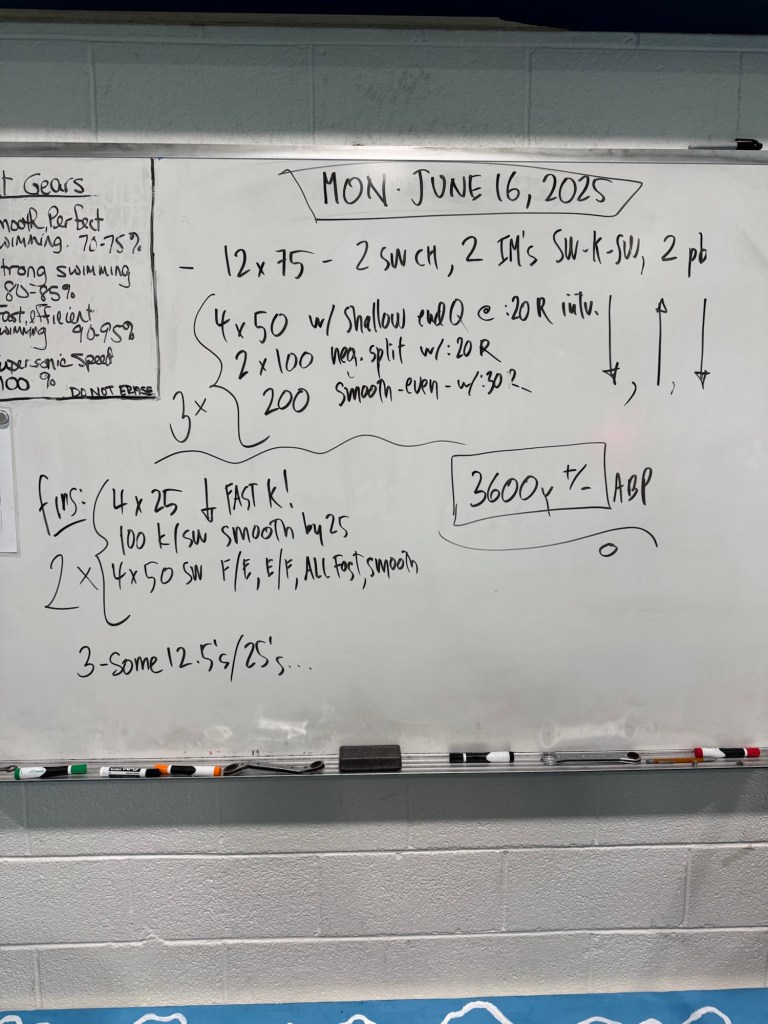 t Gears
mooth, Perfect
wimming. 70-75%
trong swimming
80-85%
Fast, efficient
wimming 90-95%
upersonic Speed
100 % DO NOT ERASE
MON. JUNE 16, 2025
- 12 x 75 - 2 SW CH, 2 IM's SW-K-SW, 2 pb
3x
4 x 50 w/ Shallow end Q @ :20 R intv.
2 x 100 neg. split w/ :20 R
200 smooth-even- w/:30 R
↓, ↑, ↓
fins:
2x
4 x 25 ↓ FAST K!
100 K/SW smooth by 25
4 x 50 SW F/E, E/F, ALL Fast, smooth
3600y +/- ABP
3-Some 12.5's/25's...